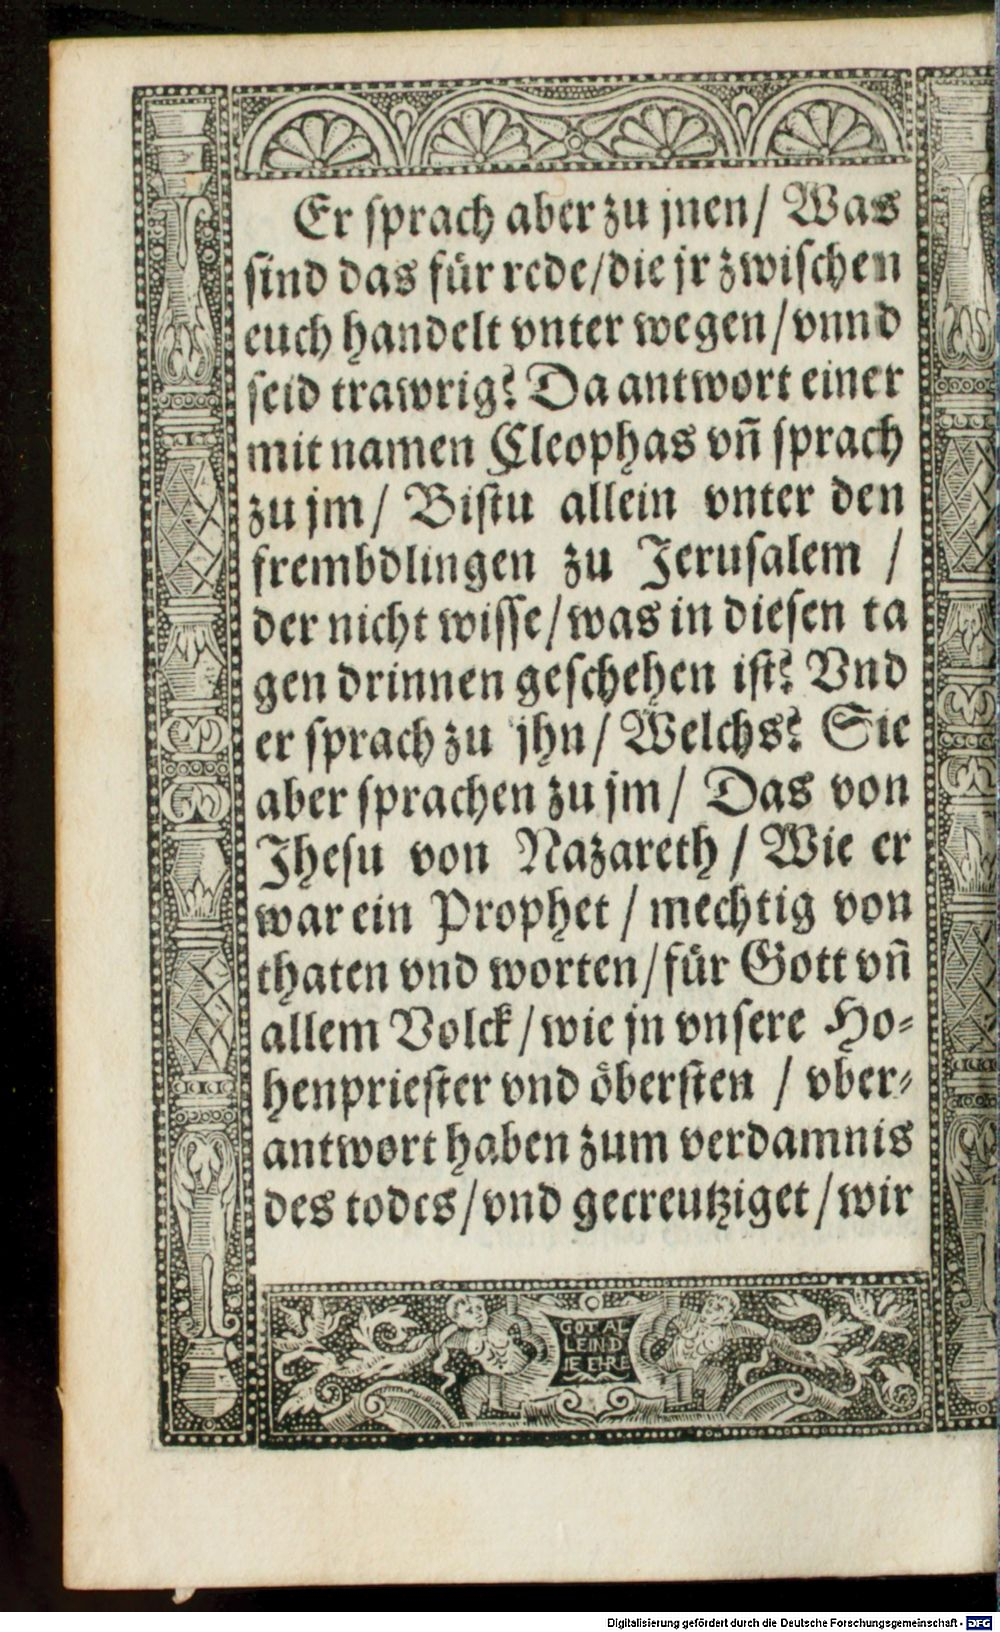 Er sprach aber zu jnen/ Was
sind das für rede/die jr zwischen
euch handelt vnter wegen/vnnd
seid trawrig? Da antwort einer
mit namen Cleophas vn̄ sprach
zu jm/ Bistu allein vnter den
frembdlingen zu Jerusalem /
der nicht wisse/was in diesen ta
gen drinnen geschehen ist? Vnd
er sprach zu jhn/ Welchs? Sie
aber sprachen zu jm/ Das von
Jhesu von Nazareth / Wie er
war ein Prophet / mechtig von
thaten vnd worten/für Gott vn̄
allem Volck/wie jn vnsere Ho⸗
henpriester vnd öbersten / vber⸗
antwort haben zum verdamnis
des todes/vnd gecreutziget/wir
GOT AL
LEIN D
IE EHRE
Digitalisierung gefördert durch die Deutsche Forschungsgemeinschaft - DFG